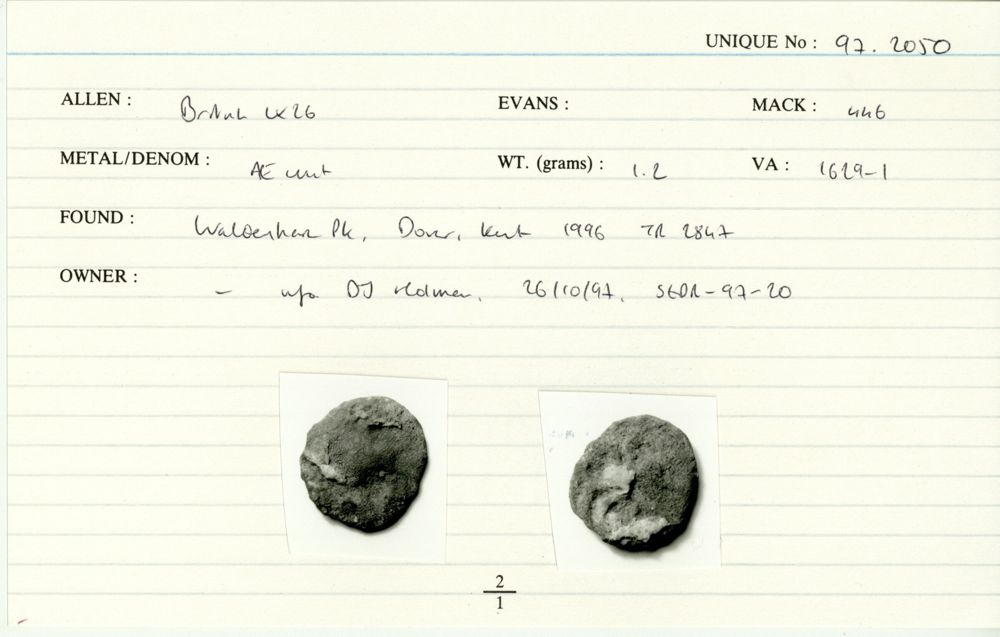 UNIQUE No : 97. 2050
ALLEN : British LX26 EVANS : MACK : 446
METAL/DENOM : AE unit WT. (grams) : 1.2 VA : 1629-1
FOUND : Waldershare Pk, Dover, Kent 1996 TR 2847
OWNER : - info DJ Holman, 26/10/97, SEDR-97-20
2
1